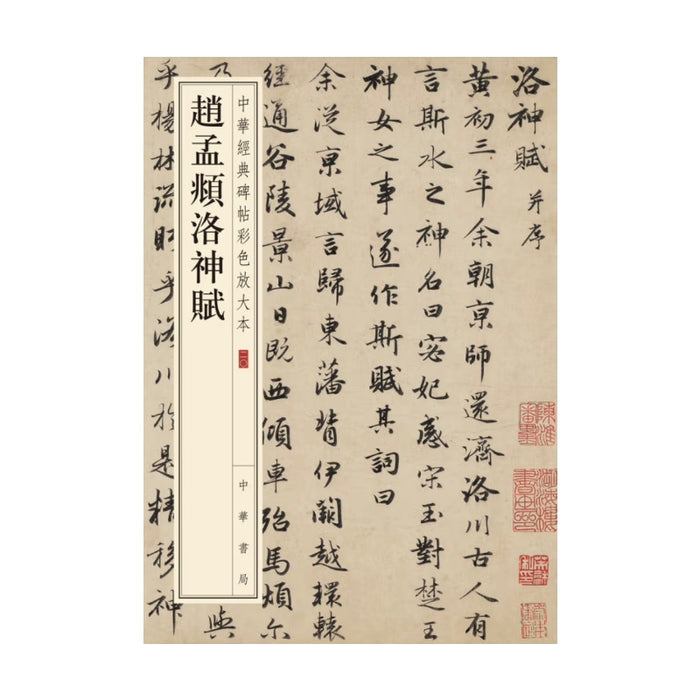 洛神賦 并序
黄初三年余朝京師還濟洛川古人有
言斯水之神名曰宓妃感宋玉對楚王
神女之事遂作斯賦其詞曰
余從京域言歸東藩背伊闕越轘轅
經通谷陵景山日既西傾車殆馬煩尔
乃
與
乎楊林流眄乎洛川於是精移神
中華經典碑帖彩色放大本 二〇
趙孟頫洛神賦
中華書局